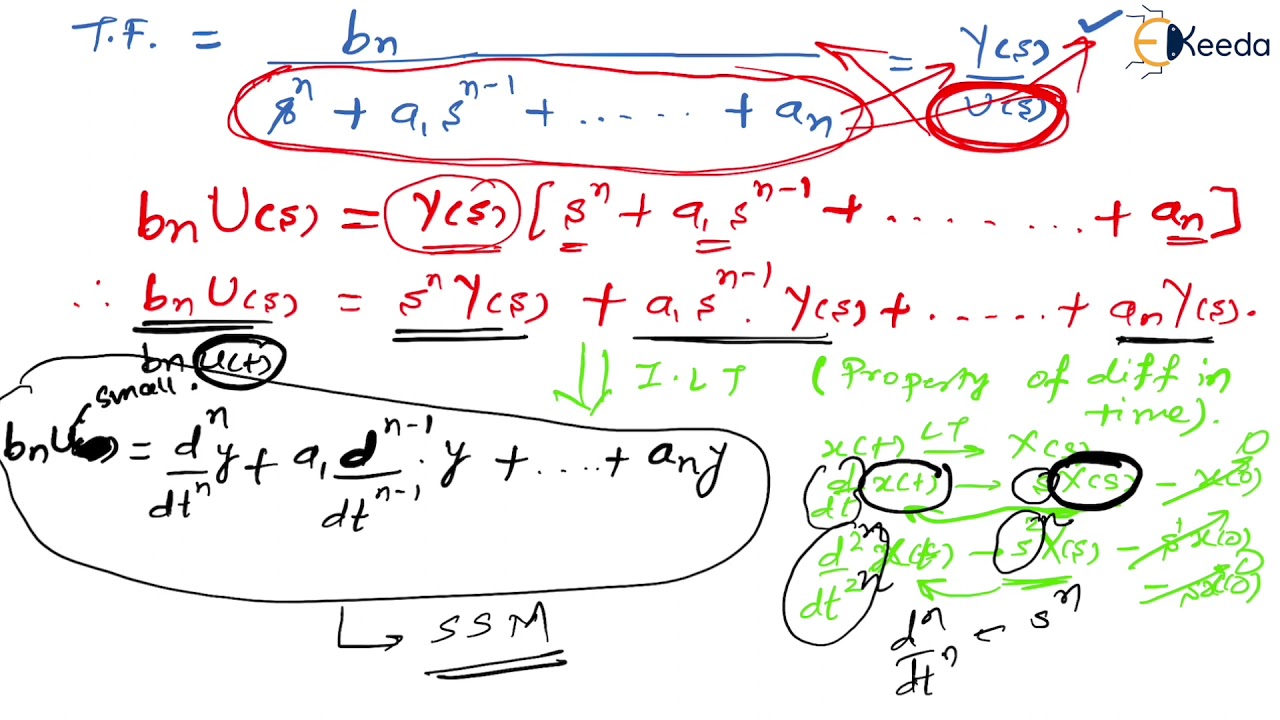 T.F. = bn / (s^n + a1 s^(n-1) + ...... + an) = Y(s) / U(s)
EKeeda
bn U(s) = Y(s) [ s^n + a1 s^(n-1) + ....... + an ]
∴ bn U(s) = s^n Y(s) + a1 s^(n-1) . Y(s) + ...... + an Y(s).
bn u(t)
small.
⇓ I.LT (Property of diff in time).
bn u = d^n/dt^n y + a1 d^(n-1)/dt^(n-1) . y + .... + an y
x(t) LT → X(s)
d/dt x(t) → s X(s) - x(0) 0
d^2/dt^2 x(t) → s^2 X(s) - s^1 x(0)
- sx(0) 0
d^n/dt^n ← s^n
↳ SSM